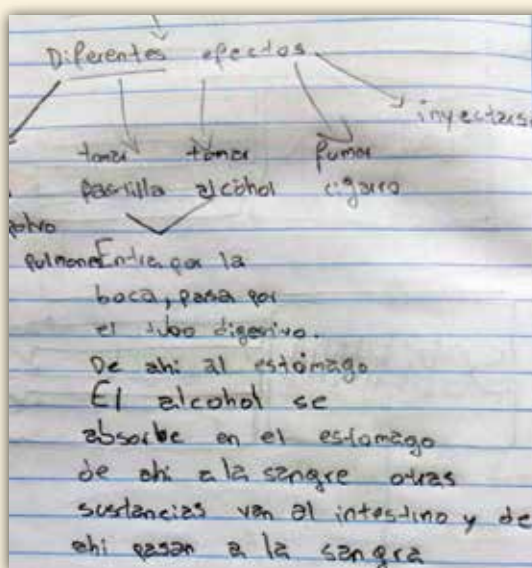 Diferentes efectos
inyectarse
tomar tomar fumar
pastilla alcohol cigarro
polvo
pulmones Entra por la
boca, pasa por
el tubo digestivo.
De ahi al estómago
El alcohol se
absorbe en el estomago
de ahi a la sangre otras
sustancias van al intestino y de
ahi pasan a la sangra